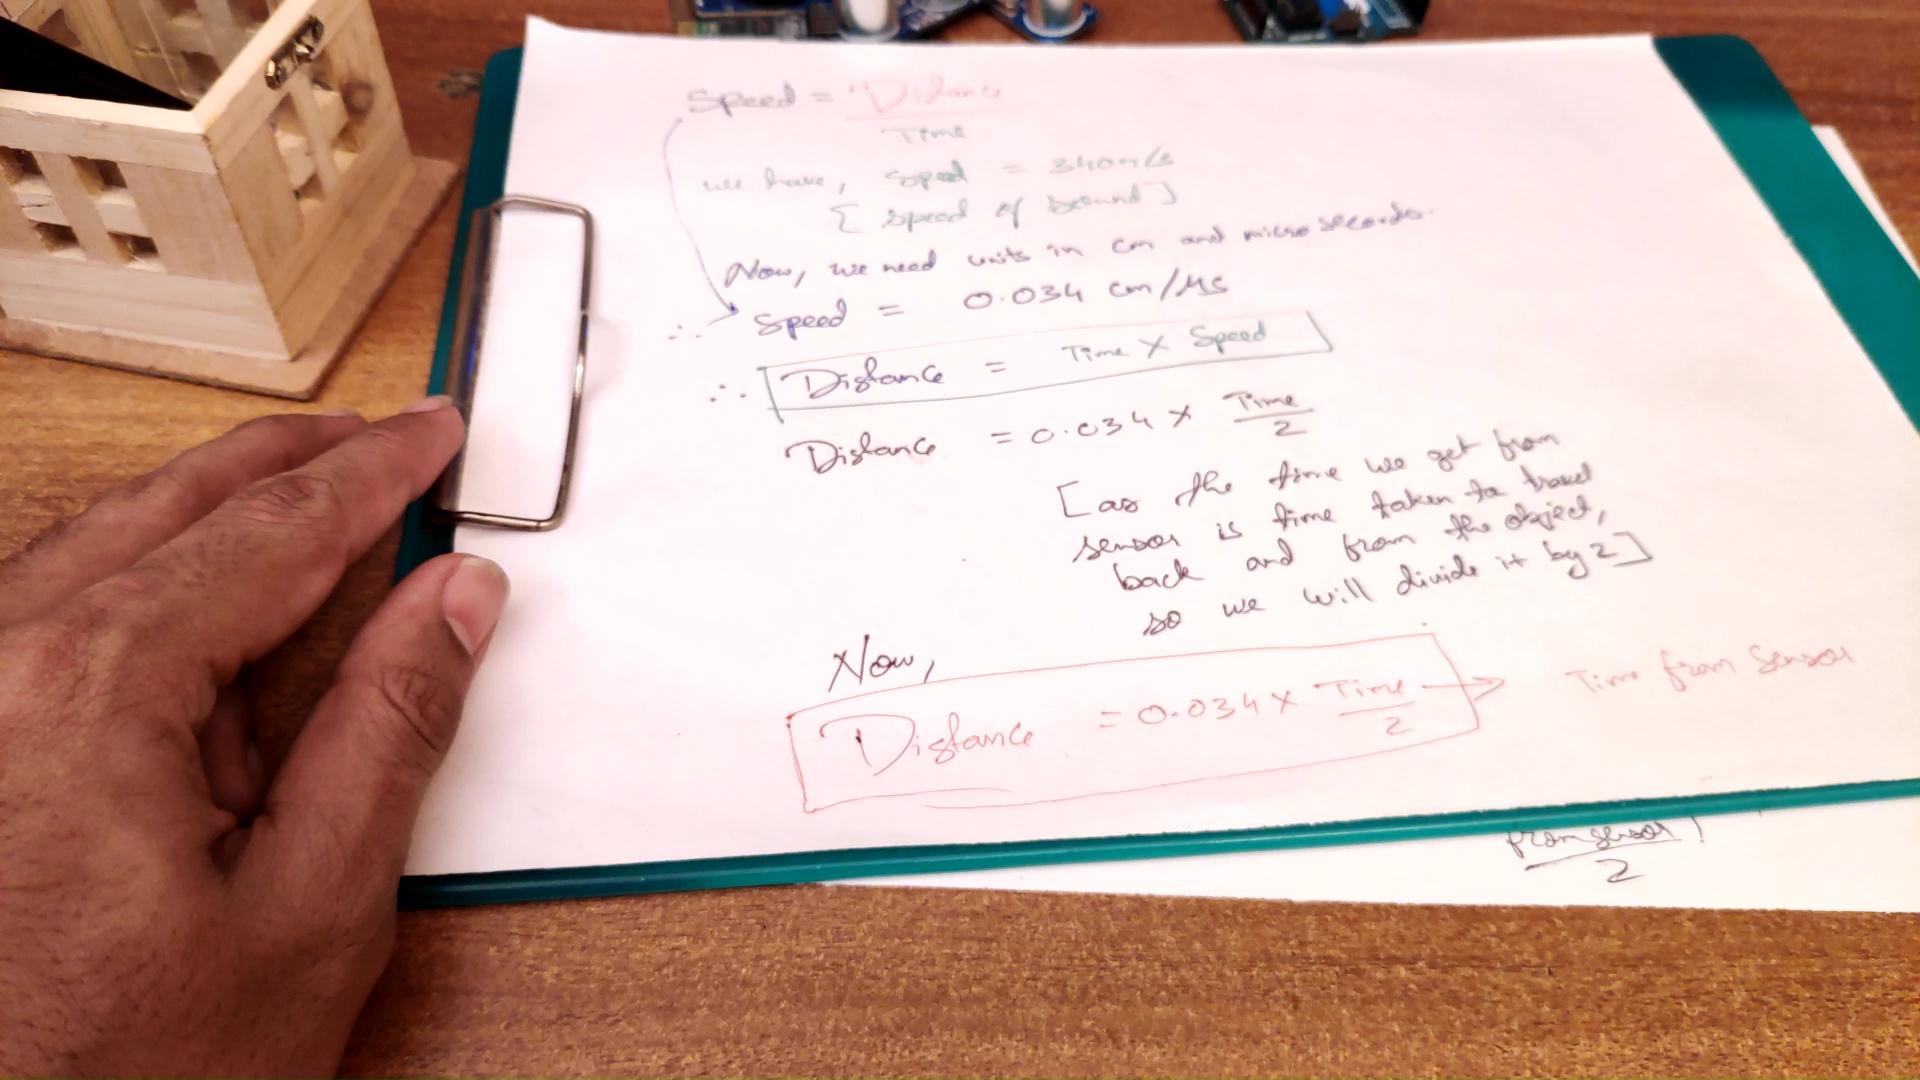 Speed = Distance
Time
we have, speed = 340m/s
[ speed of sound ]
Now, we need units in cm and micro seconds.
∴ speed = 0.034 cm/μs
∴ Distance = Time X Speed
Distance = 0.034 X Time
2
[ as the time we get from
sensor is time taken to travel
back and from the object,
so we will divide it by 2 ]
Now,
Distance = 0.034 X Time → Time from Sensor
2
from sensor
2